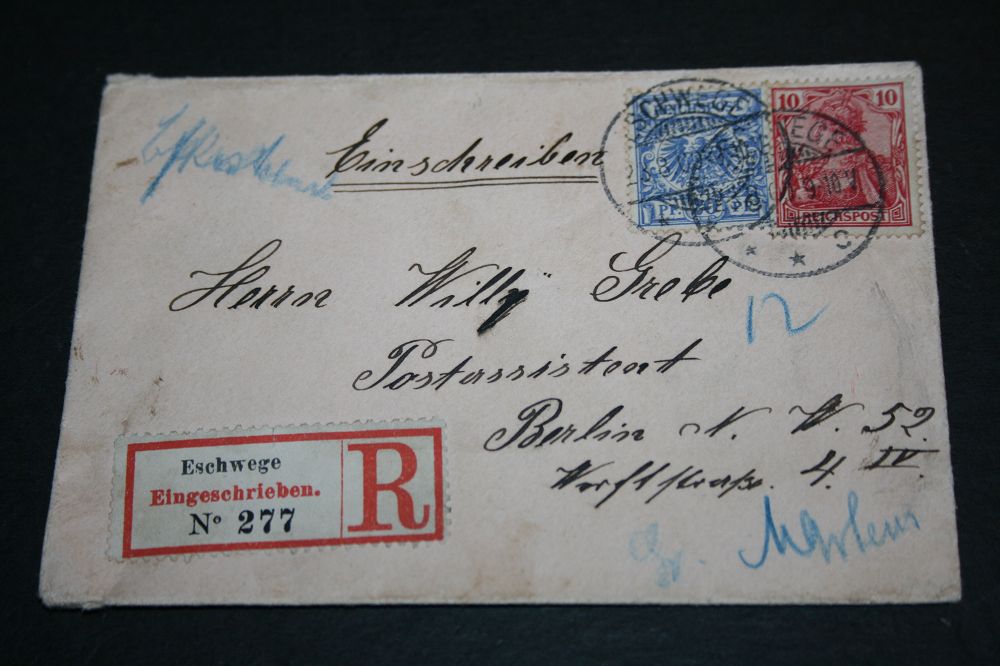 Einschreiben
10 10
REICHSPOST
Herrn Willÿ Grebe
12
Postassistent
Berlin N. W. 52.
Werftstraße. 4. IV
Eschwege
Eingeschrieben.
Nº 277
R